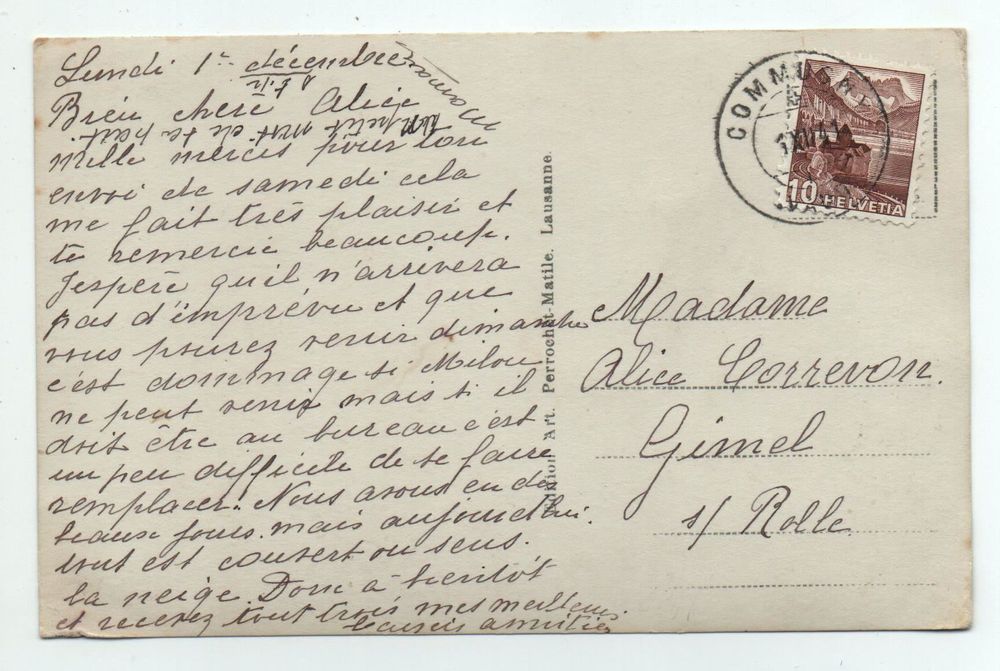 Lundi 1er décembre
Bien chère Alice
mille mercis pour ton
envoi de samedi cela
me fait très plaisir et
te remercie beaucoup.
J'espère qu'il n'arrivera
pas d'imprévu et que
vous pourez venir dimanche
c'est dommage si Milou
ne peut venir mais s'il
doit être au bureau c'est
un peu difficile de se faire
remplacer. Nous avons eu de
beaux jours mais aujourd'hui
tout est couvert on sens
la neige. Donc à bientôt
et recevez tout trois mes meilleurs
baisers amitiés
ton petit mot de
maman
Edition Art. Perrochet-Matile. Lausanne.
COMMUGNY
1 XII 41
10 HELVETIA
Madame
Alice Correvon.
Gimel
s/ Rolle